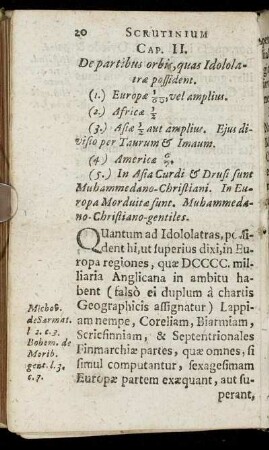 20 SCRUTINIUM
CAP. II.
De partibus orbis, quas Idolola-
træ possident.
(1.) Europæ 1/60, vel amplius.
(2.) Africæ 1/2
(3.) Asiæ 1/2 aut amplius. Ejus di-
visio per Taurum & Imaum.
(4) Americæ
(5.) In Asia Curdi & Drusi sunt
Muhammedano-Christiani. In Eu-
ropa Morduitæ sunt. Muhammeda-
no-Christiano-gentiles.
Quantum ad Idololatras, possi-
dent hi, ut superius dixi, in Eu-
ropa regiones, quæ DCCCC. mil-
liaria Anglicana in ambitu ha-
bent (falsò ei duplum à chartis
Geographicis assignatur) Lappi-
am nempe, Coreliam, Biarmiam,
Scricfinniam, & Septentrionales
Finmarchiæ partes, quæ omnes, si
simul computantur, sexagesimam
Europæ partem exæquant, aut su-
perant,
Michov.
de Sarmat.
l 2. c. 3.
Bohem. de
Morib.
gent. l. 3.
c. 7.